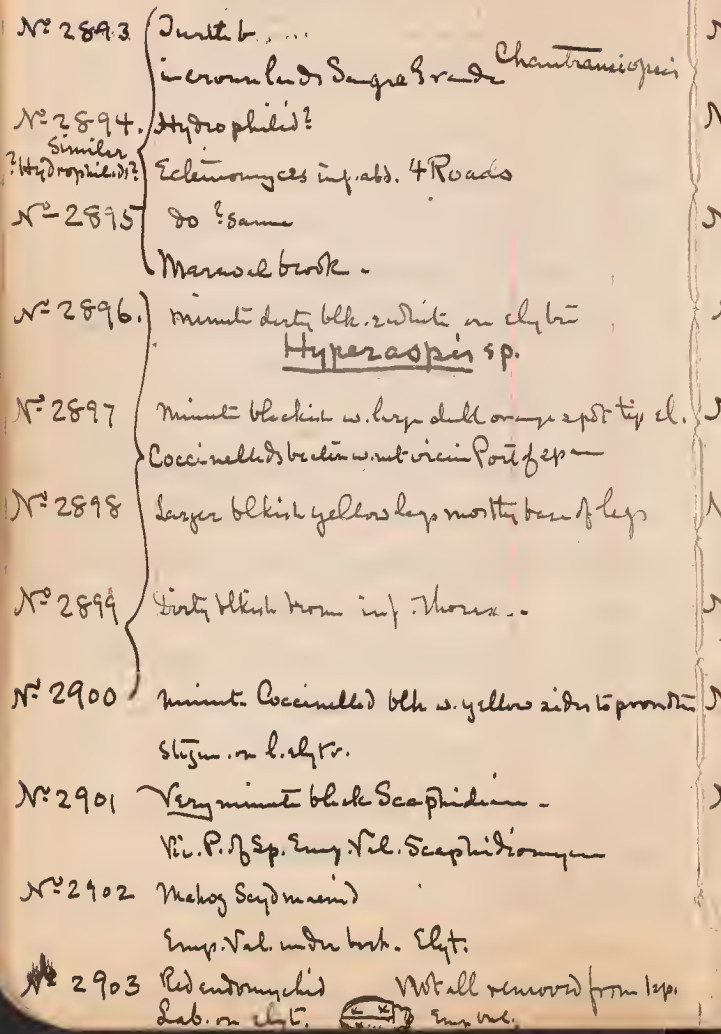 No 2893 
in crown lands Sangre Grande Chantransiopsis
No 2894. Hydrophilid?
Similar
?Hydrophilids?
Ecteinomyces inf. abd. 4 Roads
No 2895 do ?same
Maraval brook -
No 2896. minute dirty blk. white on elytra
Hyperaspis sp.
No 2897 Minute blackish w. large dull orange spot tip el.
Coccinellids w. net vicin Port of Sp
No 2898 Larger blkish yellow legs mostly base of legs
No 2899 Dirty blkish brown inf. Thorax
No 2900 minute Coccinellid blk w. yellow sides to
Stigm. on l. elytr.
No 2901 Very minute black Scaphidium -
Vic. P. of Sp. Emp. Val. Scaphidiomyces
No 2902 Mahog Scydmaenid
Emp. Val. under bark. Elyt.
No 2903 Red endomychid Not all removed from sp.
Lab. on elyt.